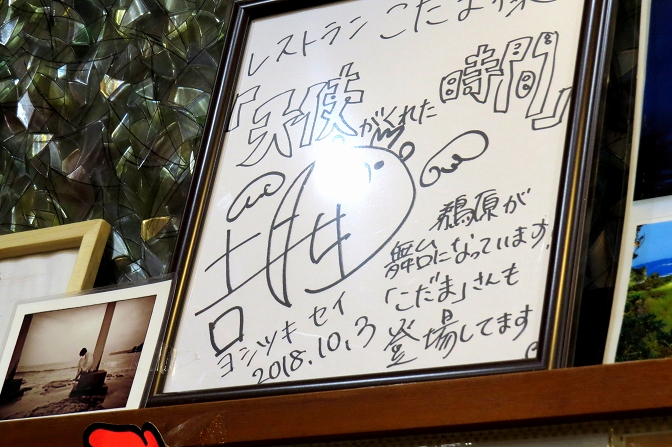 レストラン こだま様
『天使がくれた時間』
吉月生
ヨシツキ セイ
2018.10.3
鵜原が
舞台になっています。
「こだま」さんも
登場してます